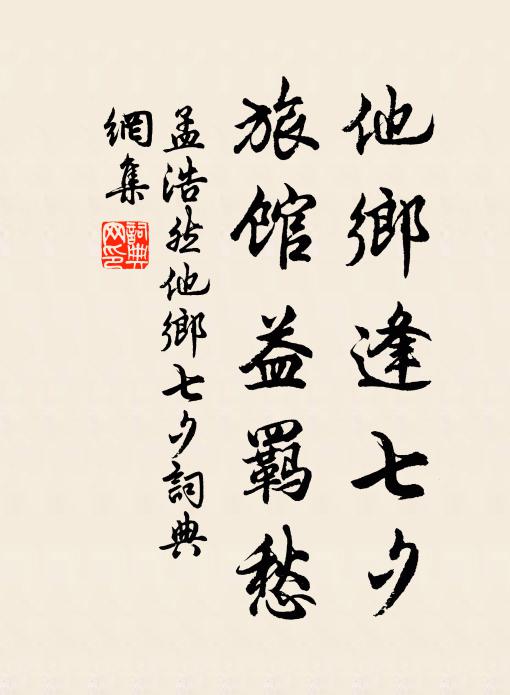 他鄉逢七夕
旅館益羈愁
孟浩然他鄉七夕詞典
網集
詞典
网印